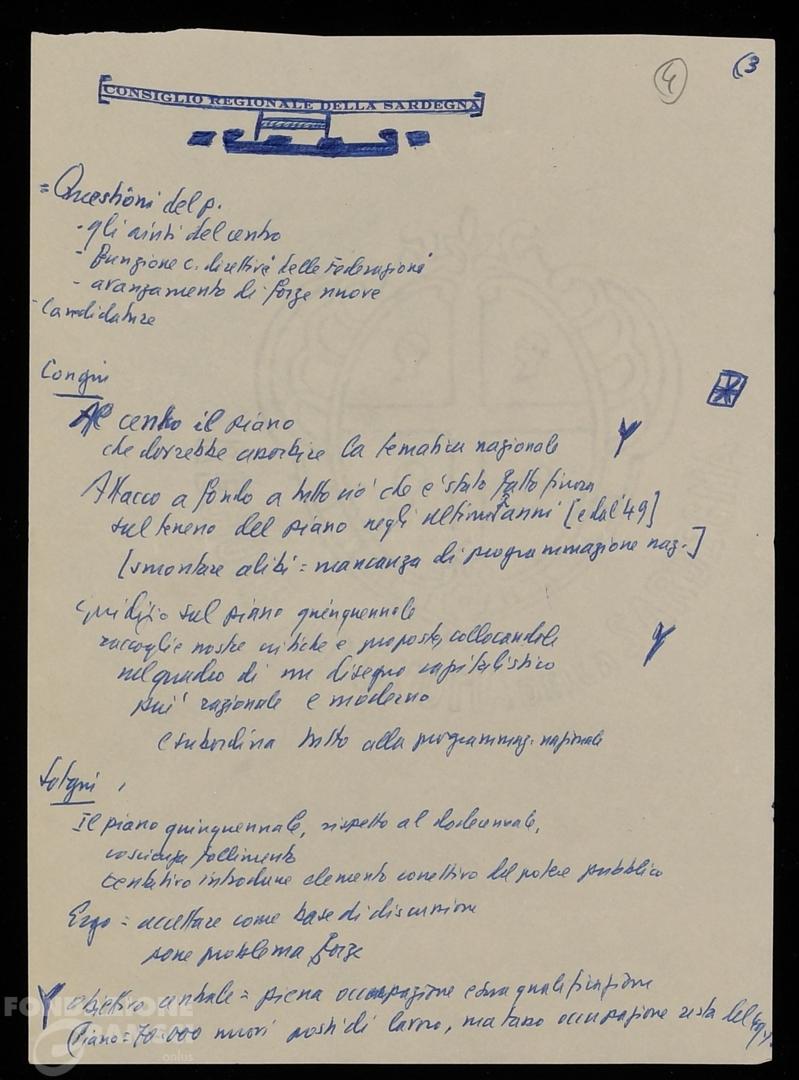 4
(3
CONSIGLIO REGIONALE DELLA SARDEGNA
= Questioni del p.
- gli aiuti del centro
- funzione c. direttivi delle Federazioni
- avanzamento di forze nuove
- Candidature
Congiu
Al centro il piano
che dovrebbe assorbire la tematica nazionale
Attacco a fondo a tutto ciò che è stato fatto finora
sul terreno del piano negli ultimi anni [e dal '49]
[smontare alibi = mancanza di programmazione naz.]
Giudizio sul piano quinquennale
raccoglie nostre critiche e proposte, collocandole
nel quadro di un disegno capitalistico
più razionale e moderno
e subordina tutto alla programmaz. nazionale
Sotgiu
Il piano quinquennale, rispetto al dodecennale,
coscienza fallimento
tentativo introdurre elemento correttivo del potere pubblico
Ergo = accettare come base di discussione
pone problema forze
obiettivo centrale = piena occupazione e sua qualificazione
Piano = 70.000 nuovi posti di lavoro, ma tasso occupazione resta del
FONDAZIONE
GRAMSCI
onlus